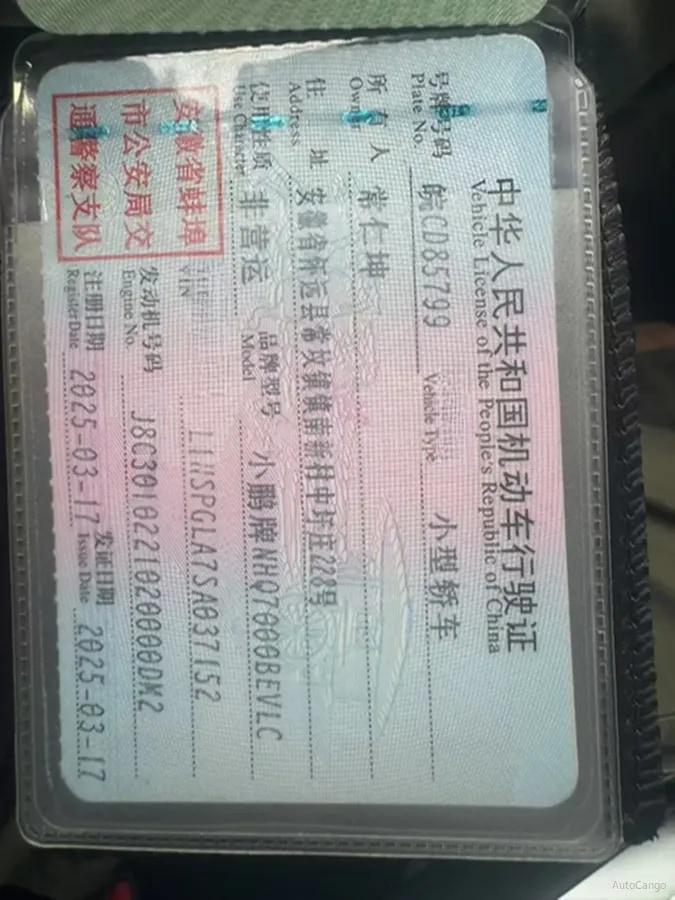 中华人民共和国机动车行驶证
Vehicle License of the People's Republic of China
号牌号码 皖CD85799 小型轿车
Plate No. Vehicle Type
所有人 常仁坤
Owner
住址 安徽省怀远县常坟镇镇南新村中圩庄228号
Address
使用性质 非营运 品牌型号 小鹏牌NHQ7000BEVLC
Use Character Model
安徽省蚌埠
市公安局交
通警察支队
VIN L1NSPGLA7SA037152
发动机号码 J8C3010221020000DM2
Engine No.
注册日期 2025-03-17 发证日期 2025-03-17
Register Date Issue Date
AutoCango